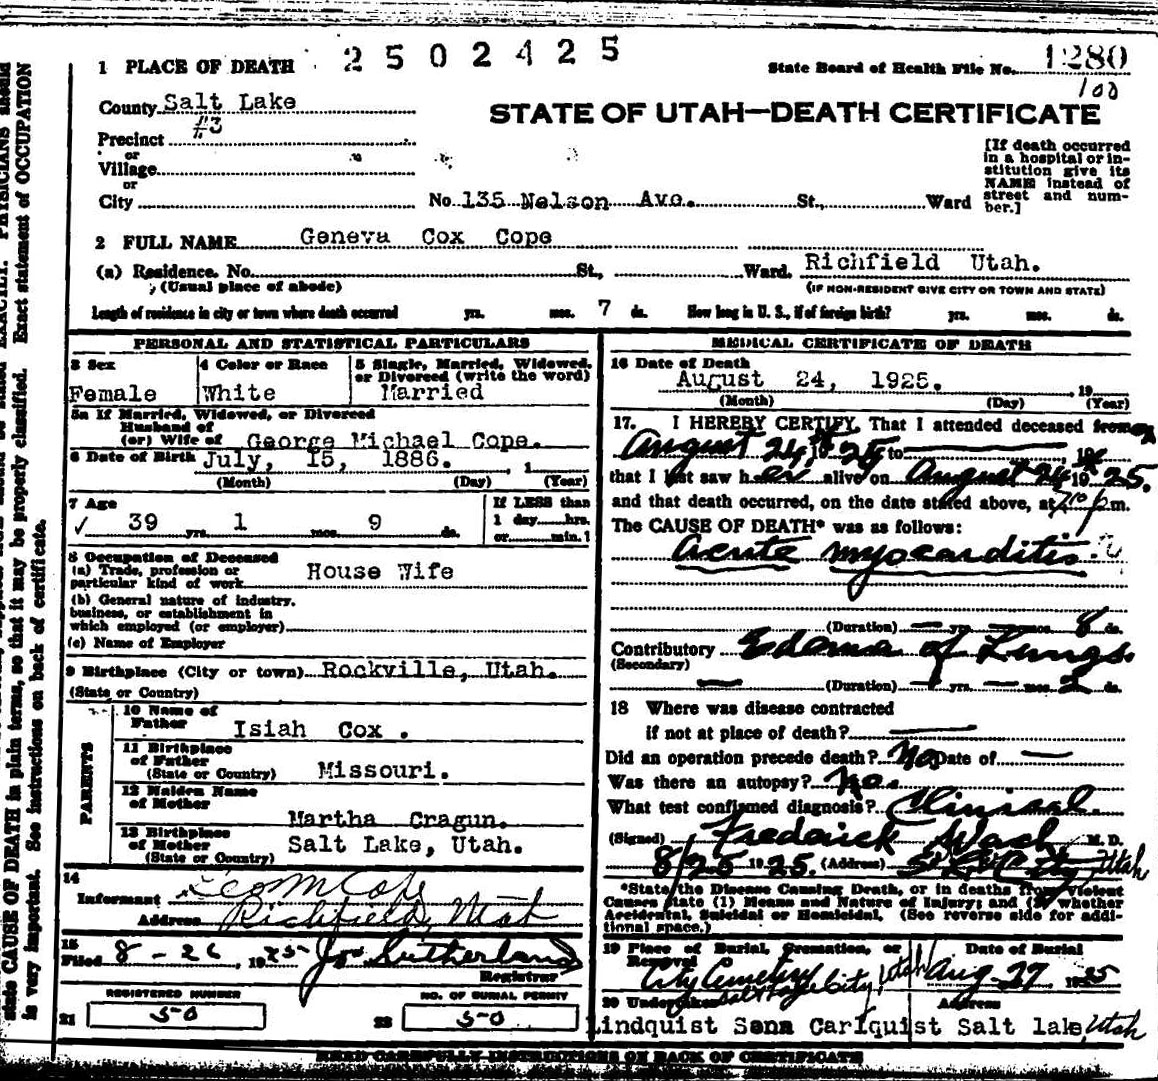 2502425
1 PLACE OF DEATH
State Board of Health File No. 1280
100
County Salt Lake
STATE OF UTAH—DEATH CERTIFICATE
Precinct #3
or
Village
or
City
No. 135 Nelson Ave. St., Ward
[If death occurred
in a hospital or in-
stitution give its
NAME instead of
street and num-
ber.]
2 FULL NAME Geneva Cox Cope
(a) Residence. No. St., Ward. Richfield Utah.
(Usual place of abode)
(IF NON-RESIDENT GIVE CITY OR TOWN AND STATE)
Length of residence in city or town where death occurred yrs. mos. 7 ds. How long in U. S., if of foreign birth? yrs. mos. ds.
PERSONAL AND STATISTICAL PARTICULARS
3 Sex
Female
4 Color or Race
White
5 Single, Married, Widowed,
or Divorced (write the word)
Married
5a If Married, Widowed, or Divorced
Husband of
(or) Wife of George Michael Cope.
6 Date of Birth July, 15, 1886. , 1
(Month) (Day) (Year)
7 Age
✓ 39 yrs. 1 mos. 9 ds.
If LESS than
1 day hrs.
or min.?
8 Occupation of Deceased
(a) Trade, profession or
particular kind of work House Wife
(b) General nature of industry,
business, or establishment in
which employed (or employer)
(c) Name of Employer
9 Birthplace (City or town) Rockville, Utah.
(State or Country)
PARENTS
10 Name of
Father Isiah Cox .
11 Birthplace
of Father
(State or Country) Missouri.
12 Maiden Name
of Mother
Martha Cragun.
13 Birthplace
of Mother
(State or Country) Salt Lake, Utah.
14
Informant Geo M Cope
Address Richfield, Utah
15
Filed 8 - 26, 1925 Jos Sutherland
Registrar
REGISTERED NUMBER
21 50
NO. OF BURIAL PERMIT
22 50
MEDICAL CERTIFICATE OF DEATH
16 Date of Death
August 24, 1925. 19
(Month) (Day) (Year)
17. I HEREBY CERTIFY, That I attended deceased from
August 24th 1925 to , 19
that I last saw her alive on August 24 1925.
and that death occurred, on the date stated above, at 7 10 p m.
The CAUSE OF DEATH* was as follows:
Acute myocarditis.
(Duration) — yrs. — mos. 8 ds.
Contributory Edema of Lungs.
(Secondary)
(Duration) — yrs. — mos. 2 ds.
18 Where was disease contracted
if not at place of death?
Did an operation precede death? No Date of —
Was there an autopsy? No.
What test confirmed diagnosis? Clinical
(Signed) Frederick Wach M. D.
8/25 1925. (Address) S. L. City Utah
*State the Disease Causing Death, or in deaths from Violent
Causes state (1) Means and Nature of Injury; and (2) whether
Accidental, Suicidal or Homicidal. (See reverse side for addi-
tional space.)
19 Place of Burial, Cremation, or
Removal
City Cemetery Salt Lake City, Utah
Date of Burial
Aug. 27, 1925
20 Undertaker
Address
Lindquist Sons Carlquist Salt lake, Utah
READ CAREFULLY INSTRUCTIONS ON BACK OF CERTIFICATE
state CAUSE OF DEATH in plain terms, so that it may be properly classified. Exact statement of OCCUPATION
is very important. See instructions on back of certificate.